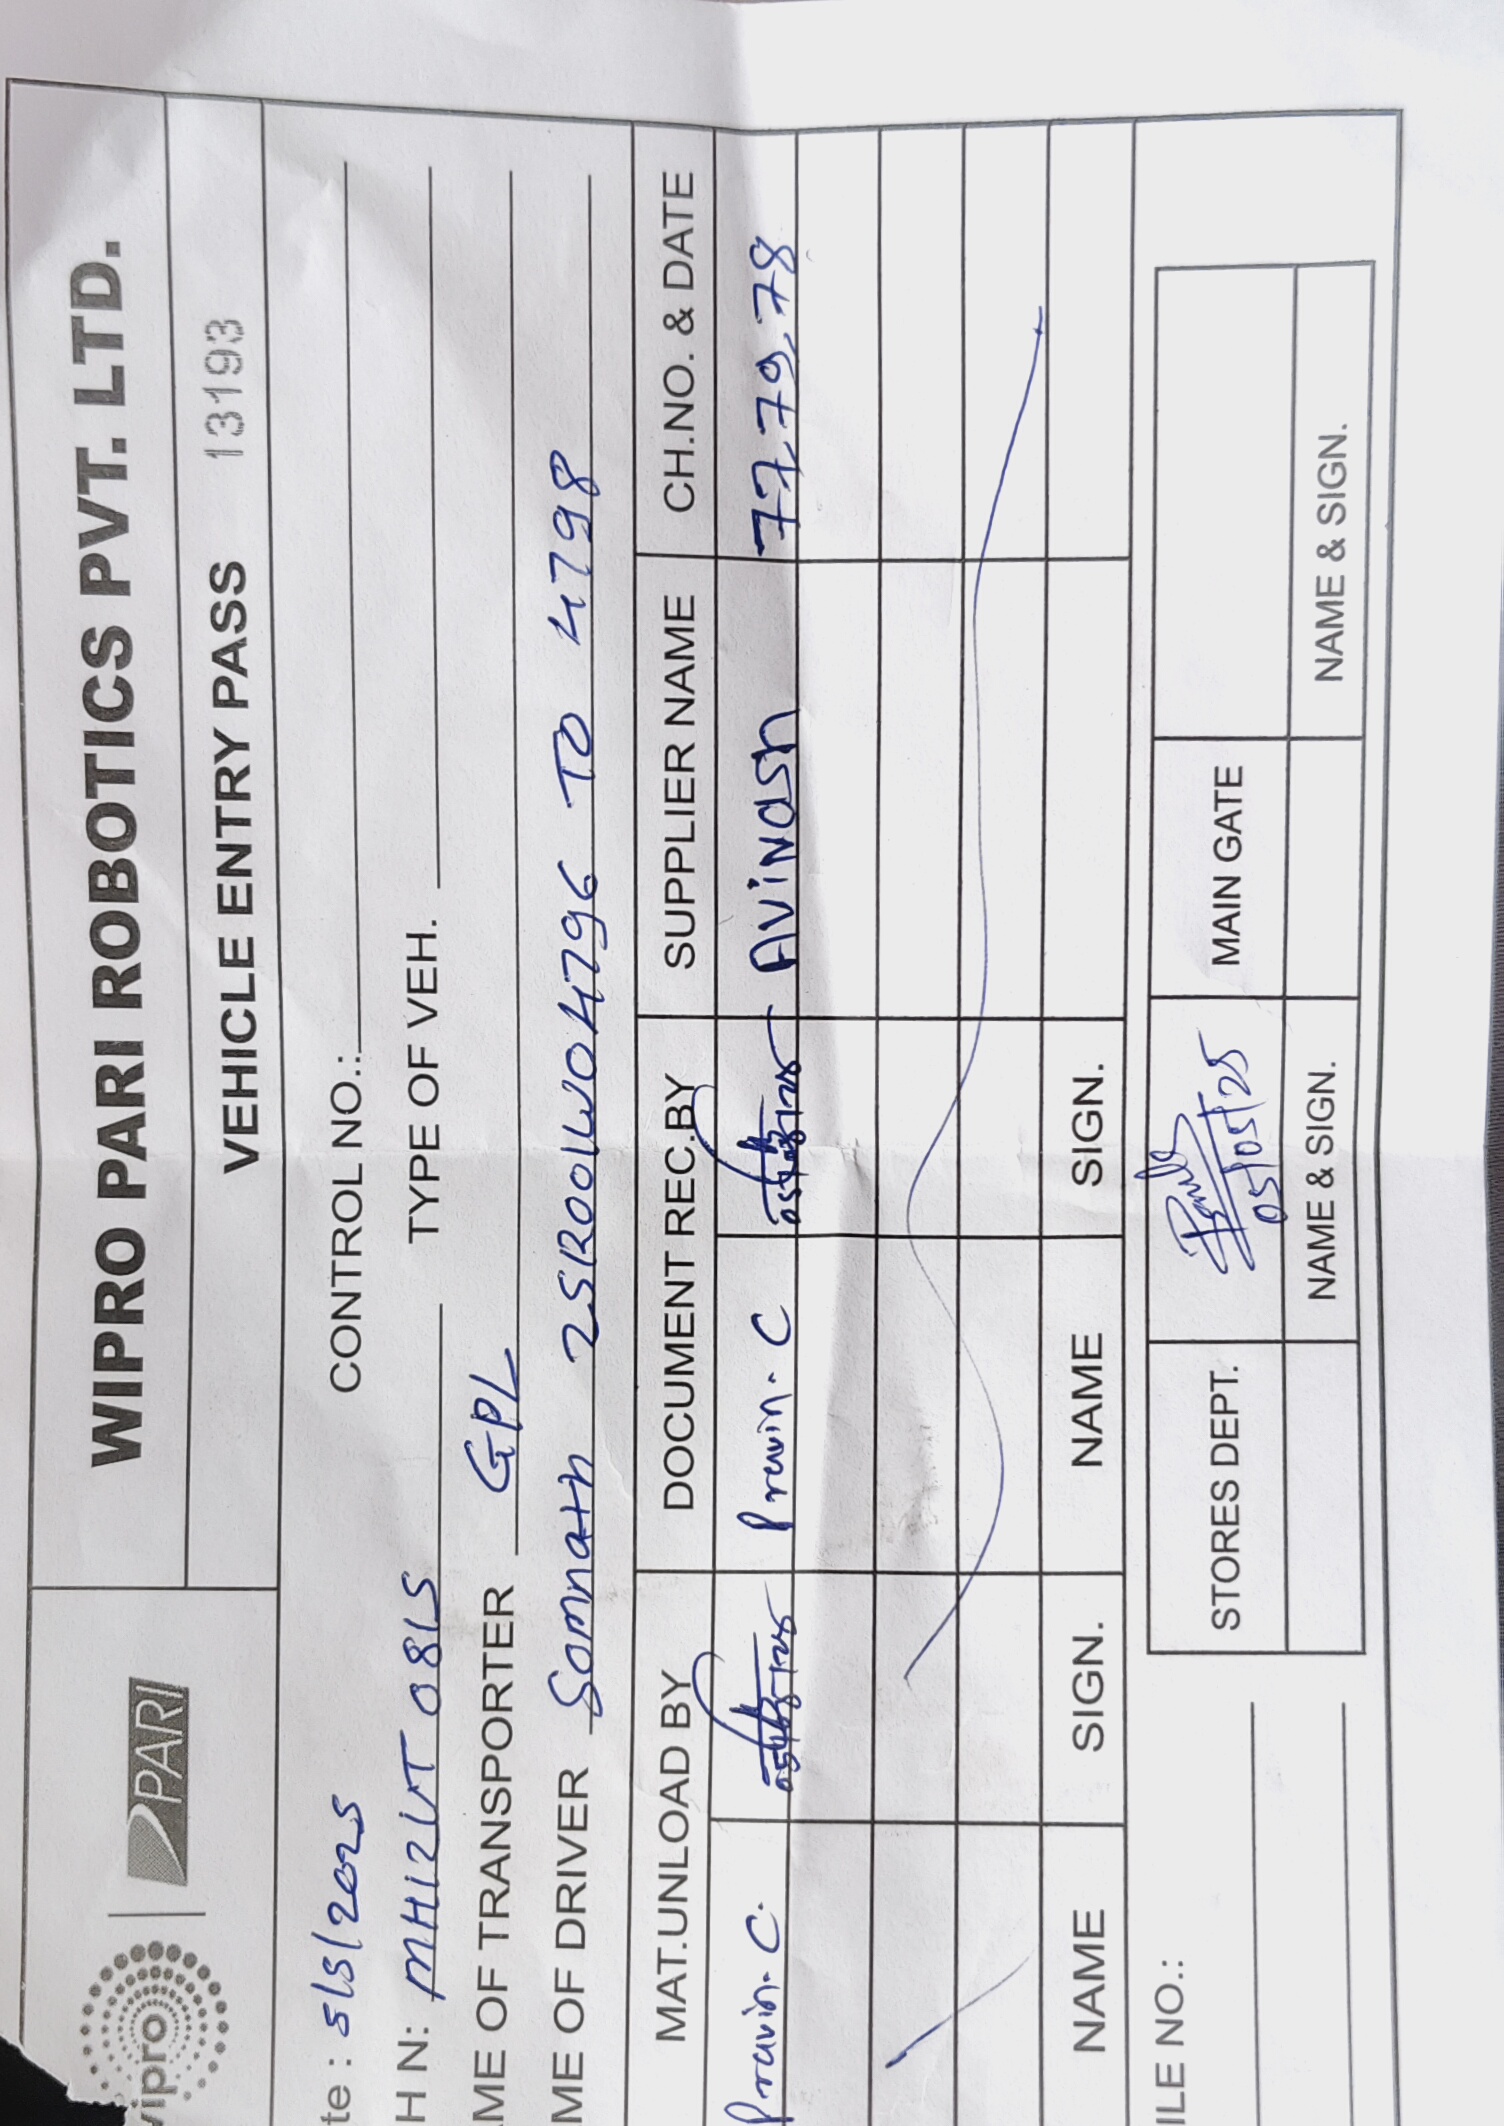 wipro PARI
WIPRO PARI ROBOTICS PVT. LTD.
VEHICLE ENTRY PASS 13193
te : 5/5/2025 CONTROL NO.:
H N: MH12VT 0815 TYPE OF VEH.
ME OF TRANSPORTER GPL
ME OF DRIVER Somnath 25R00LW04796 TO 4798
MAT.UNLOAD BY DOCUMENT REC.BY SUPPLIER NAME CH.NO. & DATE
Pravin. C. 05/05/25 Pravin. C 05/05/25 AViNash 77,79,78
NAME SIGN. NAME SIGN.
ILE NO.:
STORES DEPT. 05/05/25 MAIN GATE
NAME & SIGN. NAME & SIGN.